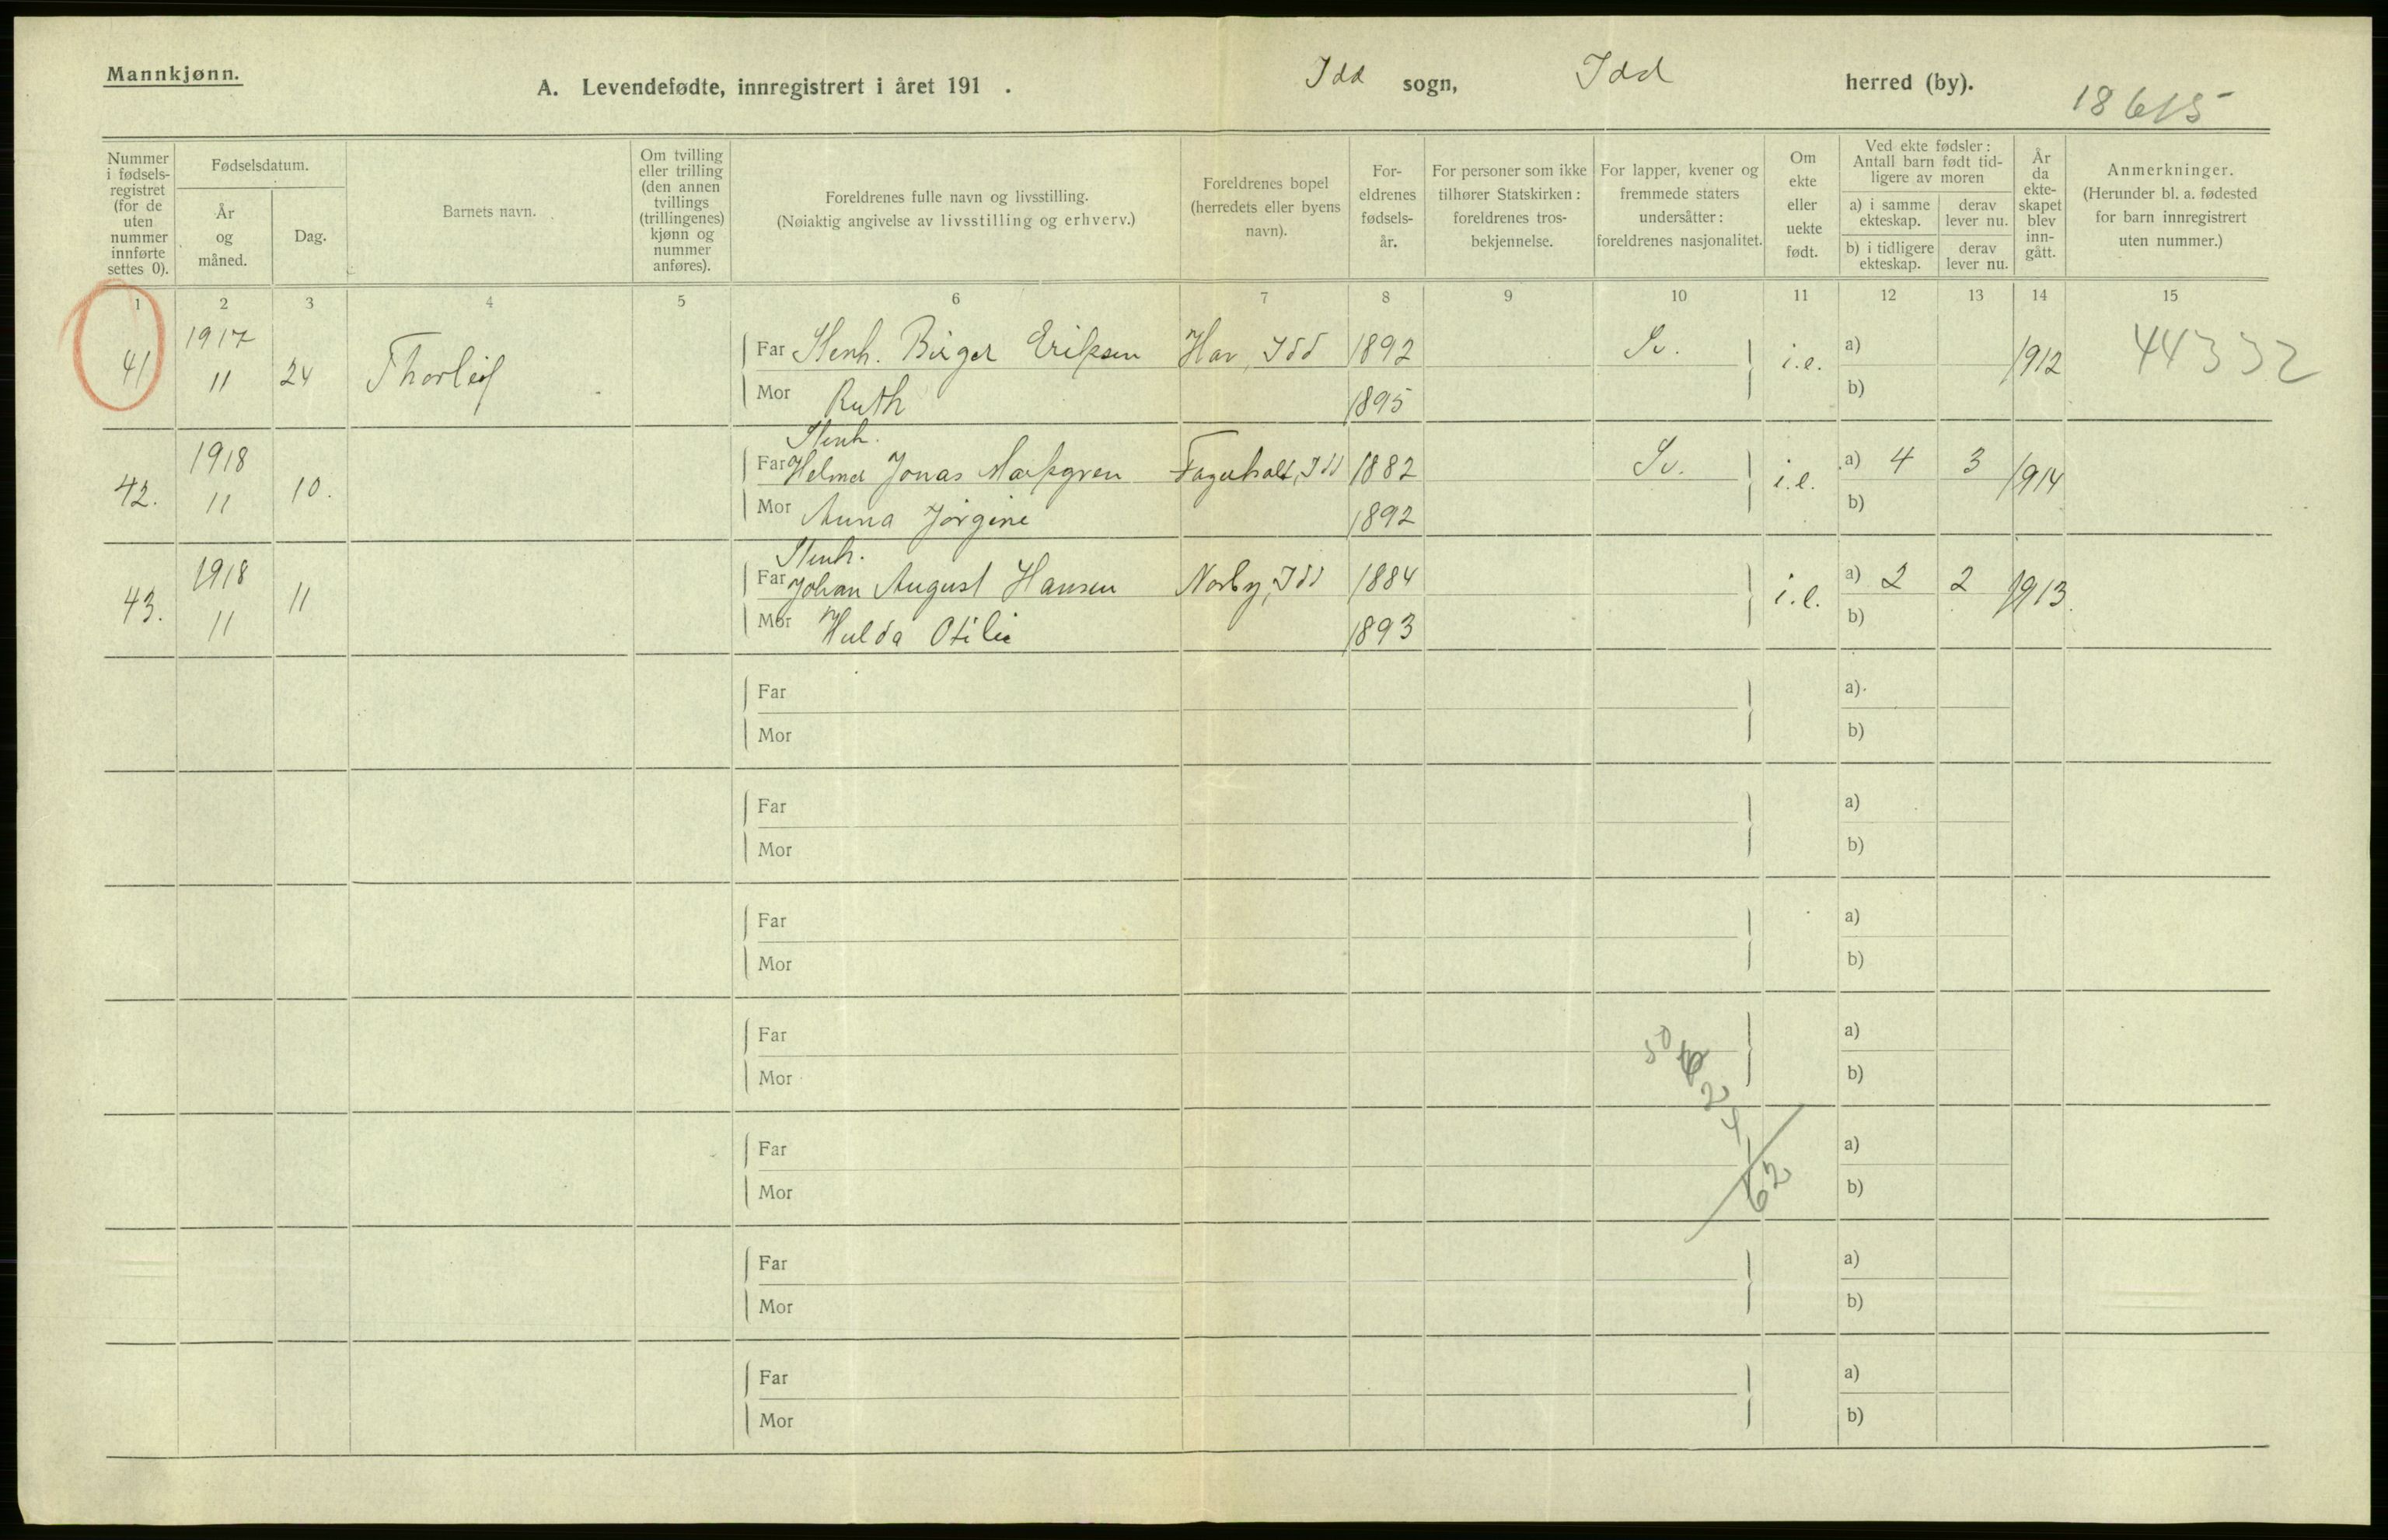 Mannkjønn.
A. Levendefødte, innregistrert i året 191 . Idd sogn, Idd herred (by).
18615
Nummer i fødselsregistret (for de uten nummer innførte settes 0).
Fødselsdatum.
År og måned.
Dag.
Barnets navn.
Om tvilling eller trilling (den annen tvillings (trillingenes) kjønn og nummer anføres).
Foreldrenes fulle navn og livsstilling.
(Nøiaktig angivelse av livsstilling og erhverv.)
Foreldrenes bopel (herredets eller byens navn).
Foreldrenes fødselsår.
For personer som ikke tilhører Statskirken: foreldrenes trosbekjennelse.
For lapper, kvener og fremmede staters undersåtter: foreldrenes nasjonalitet.
Om ekte eller uekte født.
Ved ekte fødsler: Antall barn født tidligere av moren
a) i samme ekteskap. derav lever nu.
b) i tidligere ekteskap. derav lever nu.
År da ekteskapet blev inngått.
Anmerkninger.
(Herunder bl. a. fødested for barn innregistrert uten nummer.)
1 2 3 4 5 6 7 8 9 10 11 12 13 14 15
41 1917 11 24 Thorleif Far Stenh. Birger Eriksen Hov, Idd 1892 Sv. i.e. a) 1912 44332
Mor Ruth 1895 b)
Stenh.
42. 1918 11 10. Far Helmer Jonas Markgren Fagerholt, Idd 1882 Sv. i.e. a) 4 3 1914
Mor Anna Jørgine 1892 b)
Stenh.
43. 1918 11 11 Far Johan August Hansen Norby, Idd 1884 i.e. a) 2 2 1913
Mor Hulda Otilie 1893 b)
Far a)
Mor b)
Far a)
Mor b)
Far a)
Mor b)
Far 50 6 a)
Mor 2 b)
4
Far a)
Mor 62 b)
Far a)
Mor b)
Far a)
Mor b)